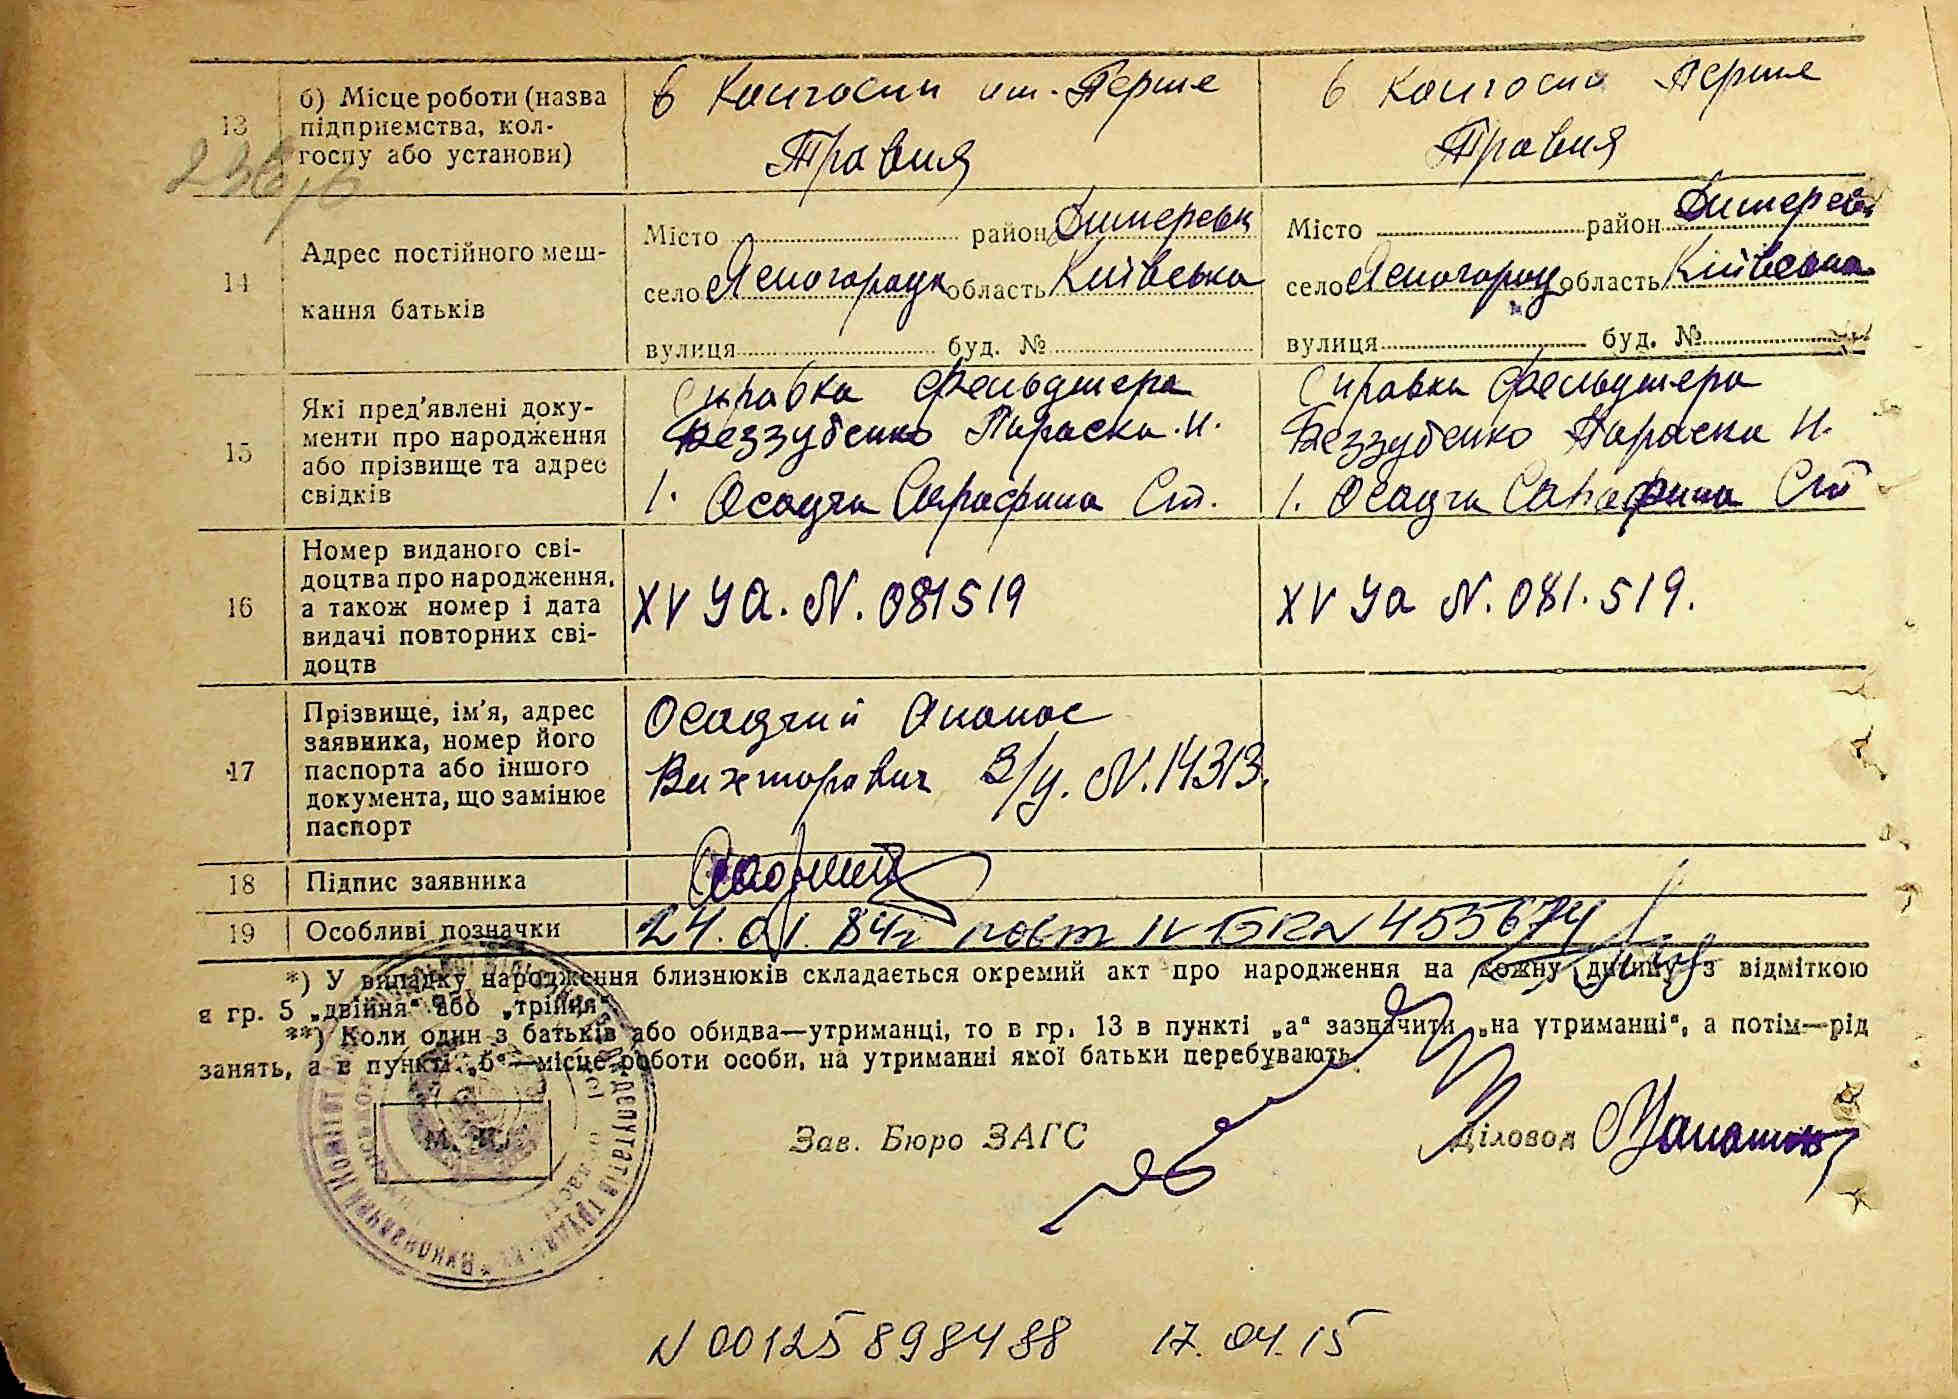 13
б) Місце роботи (назва
підприємства, кол-
госпу або установи)
в Колгоспи им. Перше
Травня
в Колгоспи Перше
Травня
14
Адрес постійного меш-
кання батьків
Місто район Димерськ
село Ясногородк область Київська
вулиця буд. №
Місто район Димерськ
село Ясногородка область Київська
вулиця буд. №
15
Які пред'явлені доку-
менти про народження
або прізвище та адрес
свідків
Справка фельдшера
Беззубенко Параска. И.
1. Осадча Сарафина Ст.
Справка фельдшера
Беззубенко Параска И.
1. Осадча Сарафина Ст
16
Номер виданого сві-
доцтва про народження,
а також номер і дата
видачі повторних сві-
доцтв
XV УА. N. 081519
XV Уа N. 081.519.
17
Прізвище, ім'я, адрес
заявника, номер його
паспорта або іншого
документа, що замінює
паспорт
Осадчий Опанас
Вихторович В/у. N. 14313.
18
Підпис заявника
Осадчий
19
Особливі позначки
24.01.84г повт IV БК N 455674
*) У випадку народження близнюків складається окремий акт про народження на кожну дитину з відміткою
в гр. 5 „двійня“ або „трійня“
**) Коли один з батьків або обидва—утриманці, то в гр. 13 в пункті „а“ зазначити „на утриманні“, а потім—рід
занять, а в пункті „б“—місце роботи особи, на утриманні якої батьки перебувають.
М. П.
Зав. Бюро ЗАГС
Діловод
N 00125898488 17.04.15